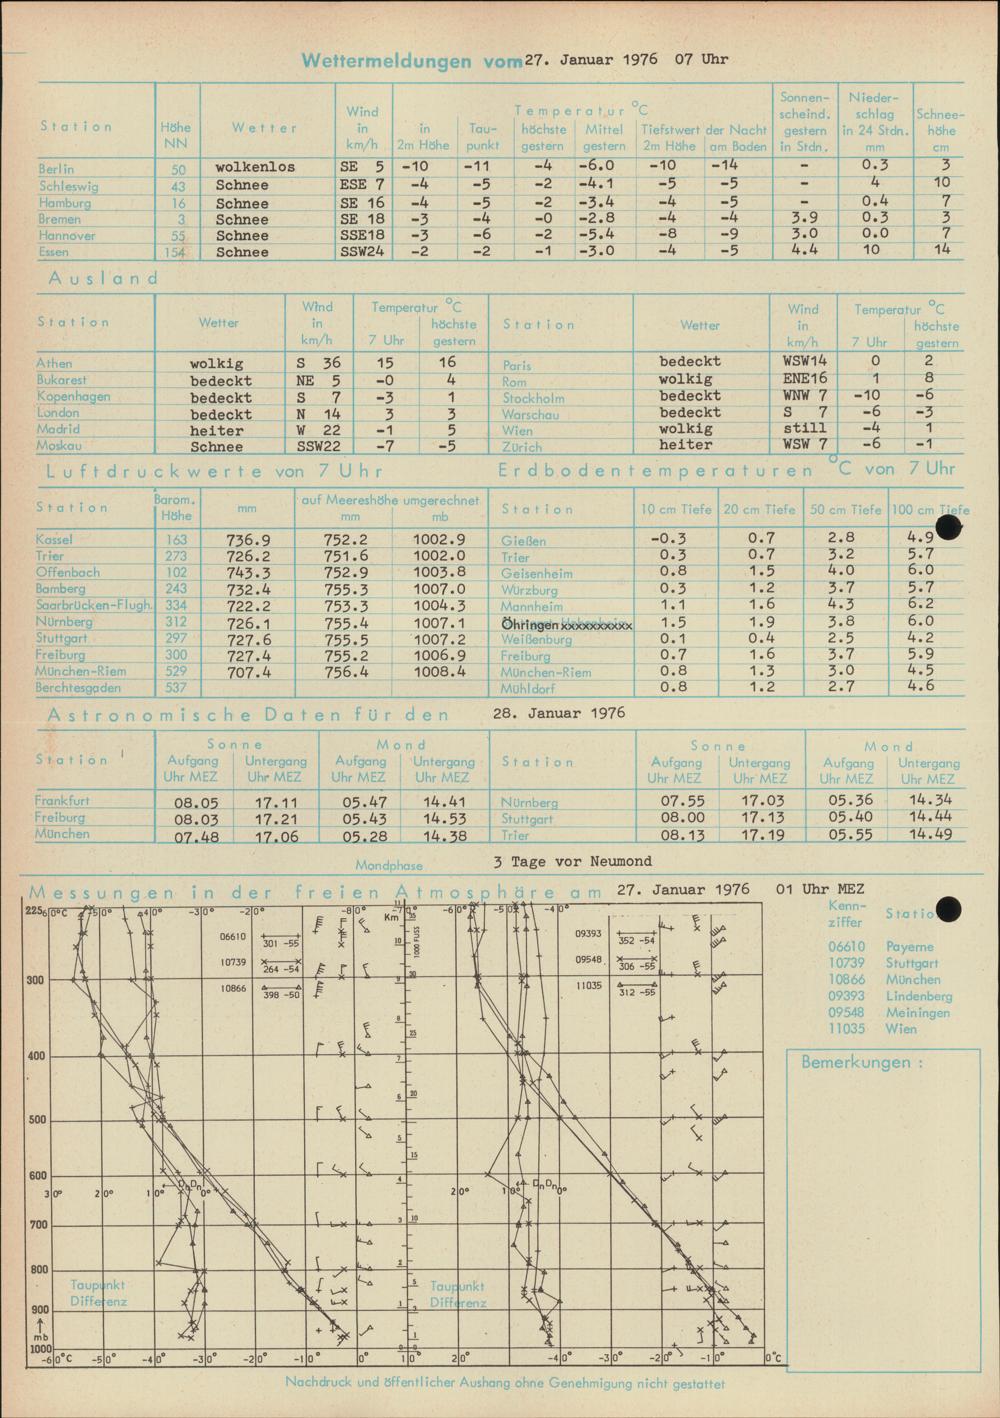 Wettermeldungen vom 27. Januar 1976 07 Uhr
Station Höhe NN Wetter Wind in km/h Temperatur °C Sonnenscheind. gestern in Stdn. Niederschlag in 24 Stdn. mm Schneehöhe cm
in 2m Höhe Taupunkt höchste gestern Mittel gestern Tiefstwert der Nacht 2m Höhe am Boden
Berlin 50 wolkenlos SE 5 -10 -11 -4 -6.0 -10 -14 - 0.3 3
Schleswig 43 Schnee ESE 7 -4 -5 -2 -4.1 -5 -5 - 4 10
Hamburg 16 Schnee SE 16 -4 -5 -2 -3.4 -4 -5 - 0.4 7
Bremen 3 Schnee SE 18 -3 -4 -0 -2.8 -4 -4 3.9 0.3 3
Hannover 55 Schnee SSE18 -3 -6 -2 -5.4 -8 -9 3.0 0.0 7
Essen 154 Schnee SSW24 -2 -2 -1 -3.0 -4 -5 4.4 10 14
Ausland
Station Wetter Wind in km/h Temperatur °C 7 Uhr höchste gestern Station Wetter Wind in km/h Temperatur °C 7 Uhr höchste gestern
Athen wolkig S 36 15 16 Paris bedeckt WSW14 0 2
Bukarest bedeckt NE 5 -0 4 Rom wolkig ENE16 1 8
Kopenhagen bedeckt S 7 -3 1 Stockholm bedeckt WNW 7 -10 -6
London bedeckt N 14 3 3 Warschau bedeckt S 7 -6 -3
Madrid heiter W 22 -1 5 Wien wolkig still -4 1
Moskau Schnee SSW22 -7 -5 Zürich heiter WSW 7 -6 -1
Luftdruckwerte von 7 Uhr Erdbodentemperaturen °C von 7 Uhr
Station Barom. Höhe mm auf Meereshöhe umgerechnet mm mb Station 10 cm Tiefe 20 cm Tiefe 50 cm Tiefe 100 cm Tiefe
Kassel 163 736.9 752.2 1002.9 Gießen -0.3 0.7 2.8 4.9
Trier 273 726.2 751.6 1002.0 Trier 0.3 0.7 3.2 5.7
Offenbach 102 743.3 752.9 1003.8 Geisenheim 0.8 1.5 4.0 6.0
Bamberg 243 732.4 755.3 1007.0 Würzburg 0.3 1.2 3.7 5.7
Saarbrücken-Flugh. 334 722.2 753.3 1004.3 Mannheim 1.1 1.6 4.3 6.2
Nürnberg 312 726.1 755.4 1007.1 Öhringen xxxxxxxxxx 1.5 1.9 3.8 6.0
Stuttgart 297 727.6 755.5 1007.2 Weißenburg 0.1 0.4 2.5 4.2
Freiburg 300 727.4 755.2 1006.9 Freiburg 0.7 1.6 3.7 5.9
München-Riem 529 707.4 756.4 1008.4 München-Riem 0.8 1.3 3.0 4.5
Berchtesgaden 537 Mühldorf 0.8 1.2 2.7 4.6
Astronomische Daten für den 28. Januar 1976
Station Sonne Mond Station Sonne Mond
Aufgang Uhr MEZ Untergang Uhr MEZ Aufgang Uhr MEZ Untergang Uhr MEZ Aufgang Uhr MEZ Untergang Uhr MEZ Aufgang Uhr MEZ Untergang Uhr MEZ
Frankfurt 08.05 17.11 05.47 14.41 Nürnberg 07.55 17.03 05.36 14.34
Freiburg 08.03 17.21 05.43 14.53 Stuttgart 08.00 17.13 05.40 14.44
München 07.48 17.06 05.28 14.38 Trier 08.13 17.19 05.55 14.49
Mondphase 3 Tage vor Neumond
Messungen in der freien Atmosphäre am 27. Januar 1976 01 Uhr MEZ
Kennziffer Statio
06610 Payerne
10739 Stuttgart
10866 München
09393 Lindenberg
09548 Meiningen
11035 Wien
Bemerkungen :
225 -60°C -50° -40° -30° -20° -80° Km -70° -60° -50° -40°
1000 FUSS
06610 301 -55
10739 264 -54
10866 398 -50
09393 352 -54
09548 306 -55
11035 312 -55
300
400
500
600
30° 20° 10° DnDn 0° 20° 10° DnDn 0°
700
800
Taupunkt Differenz Taupunkt Differenz
900
mb
1000
-60°C -50° -40° -30° -20° -10° 10° 20° -40° -30° -20° -10° 0°C
Nachdruck und öffentlicher Aushang ohne Genehmigung nicht gestattet